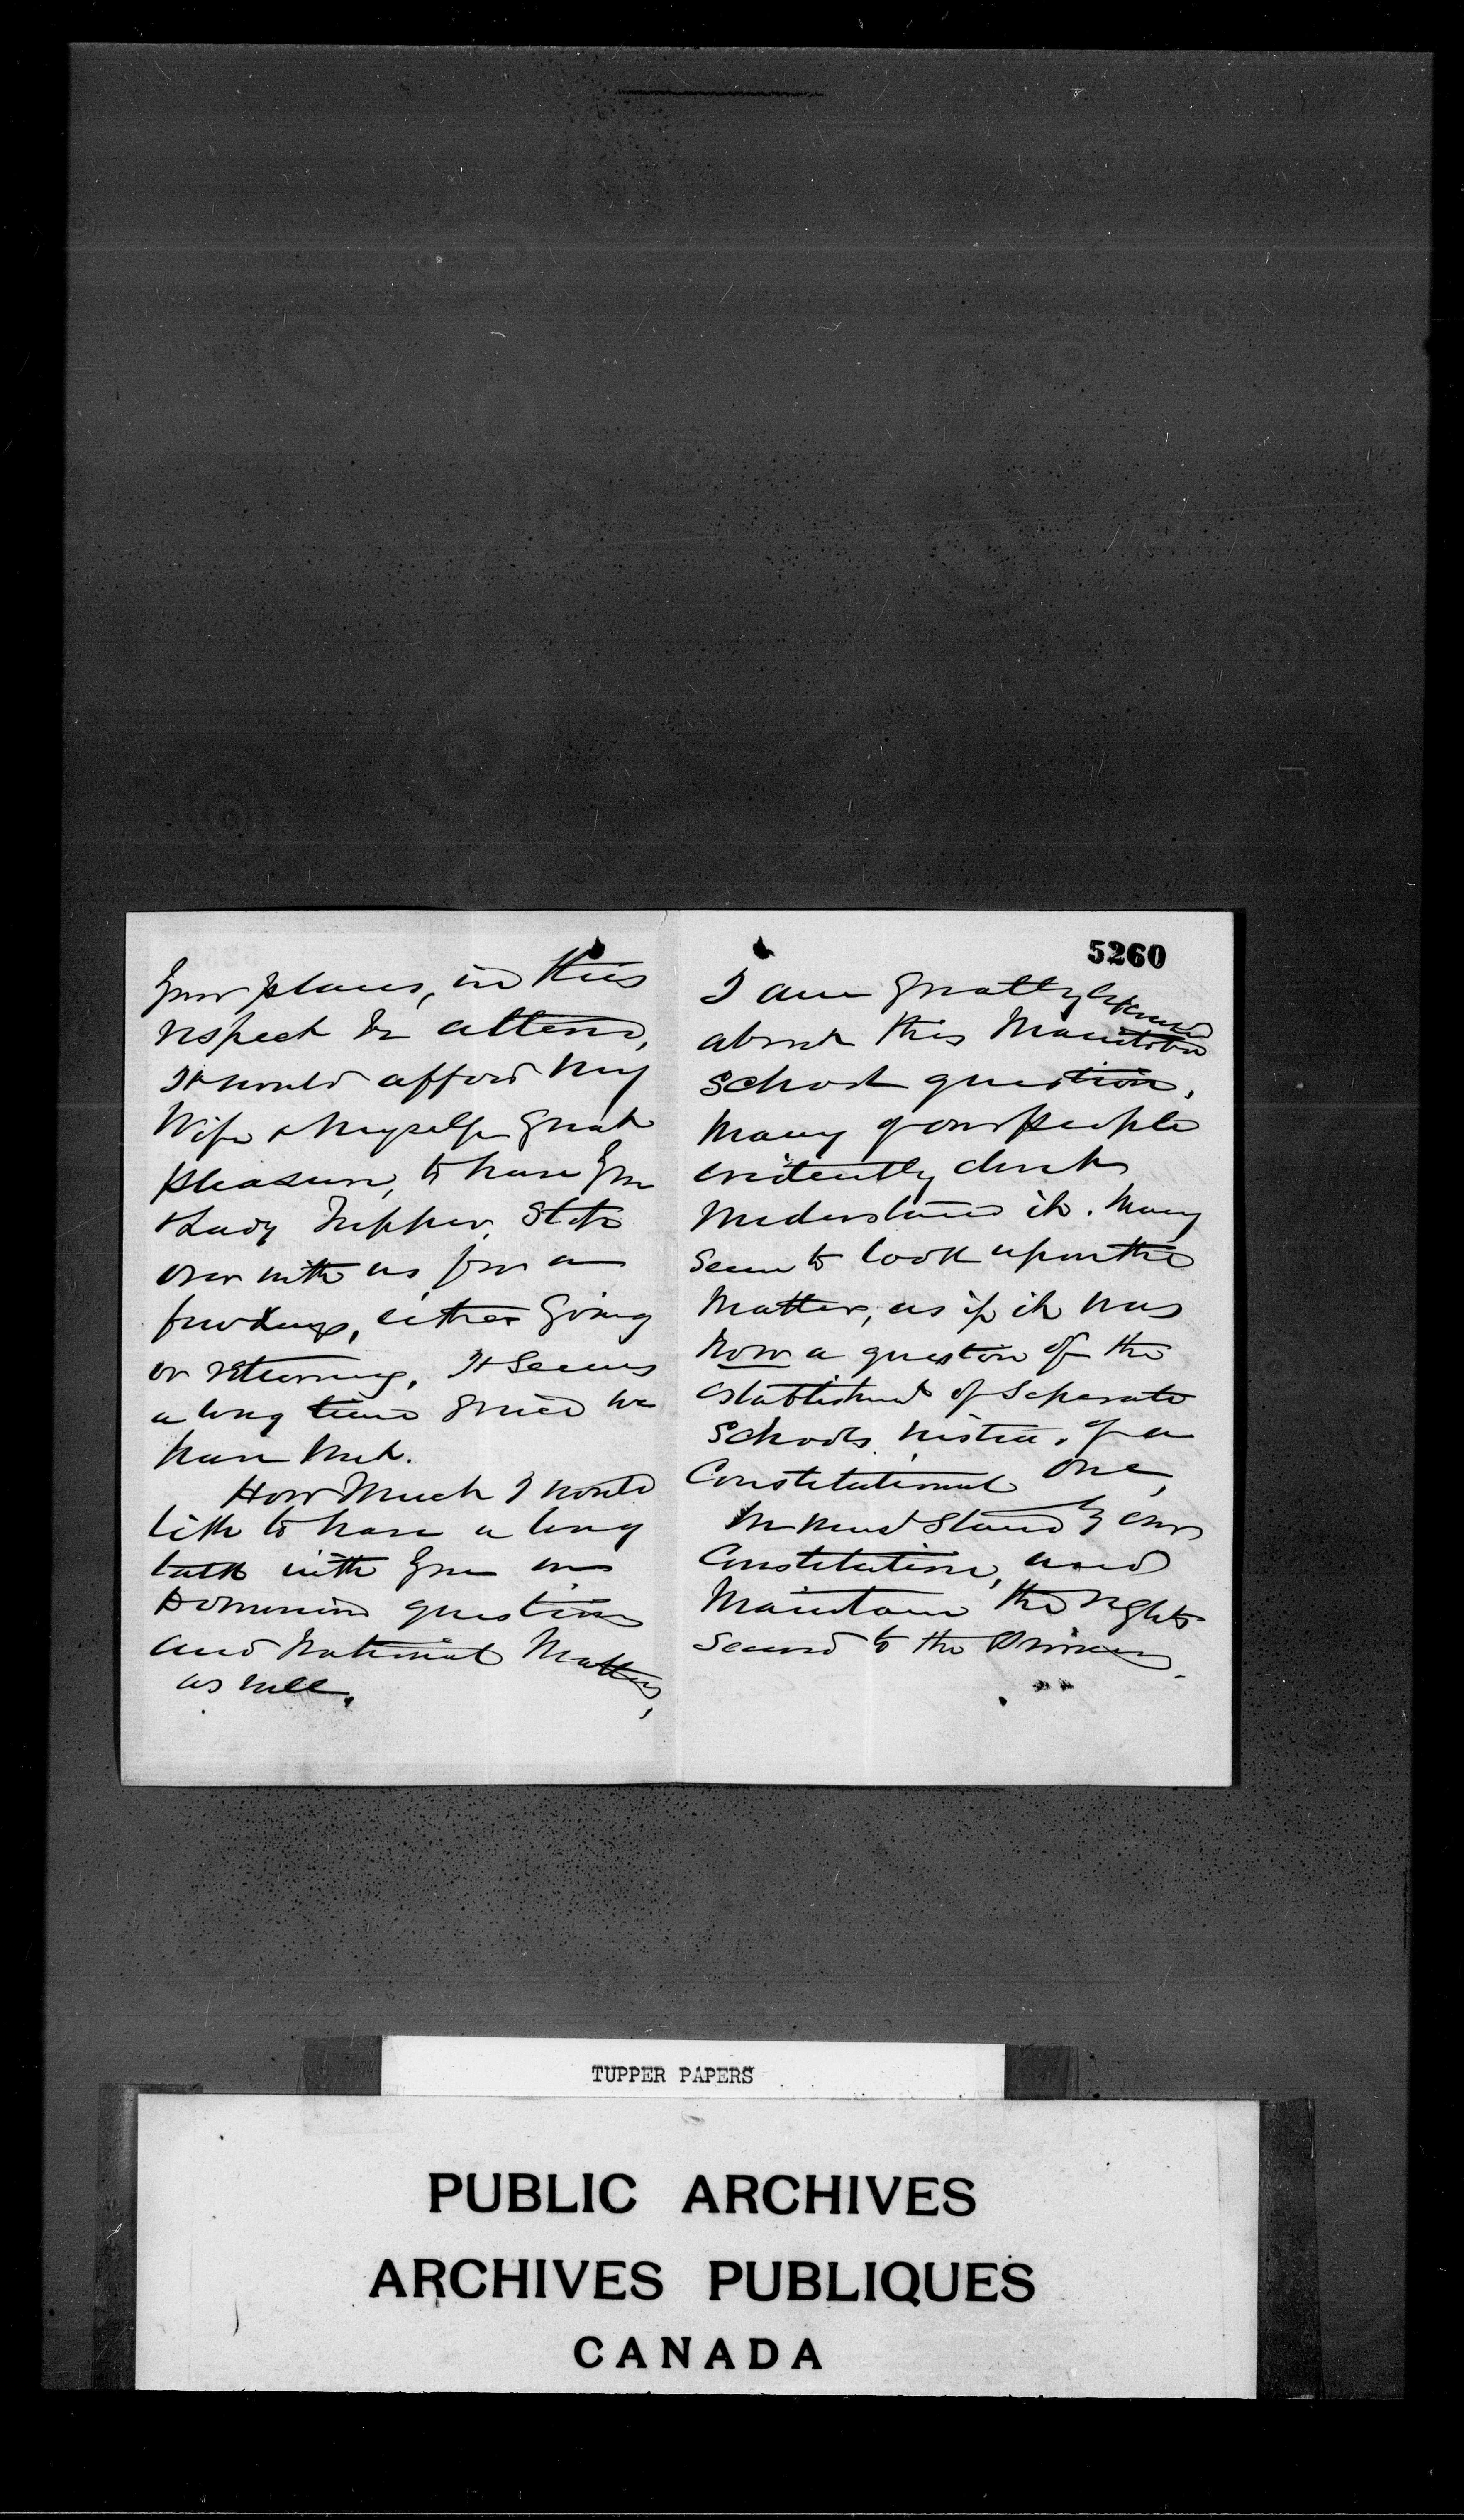 your plans, in this
respect be altered,
It would afford my
Wife & myself great
pleasure, to have you
& Lady Tupper, stop
over with us for a
few days, either going
or returning, It seems
a long time since we
have met.
How much I would
like to have a long
talk with you on
Dominion questions
and National Matters,
as well.
5260
I am greatly
about this Manitoba
School question,
many of our people
evidently don't
understand it. Many
seem to look upon the
matter, as if it was
now a question of the
establishment of Separate
Schools instead of a
Constitutional one,
We must stand by our
Constitution, and
Maintain the rights
secured to the
TUPPER PAPERS
PUBLIC ARCHIVES
ARCHIVES PUBLIQUES
CANADA